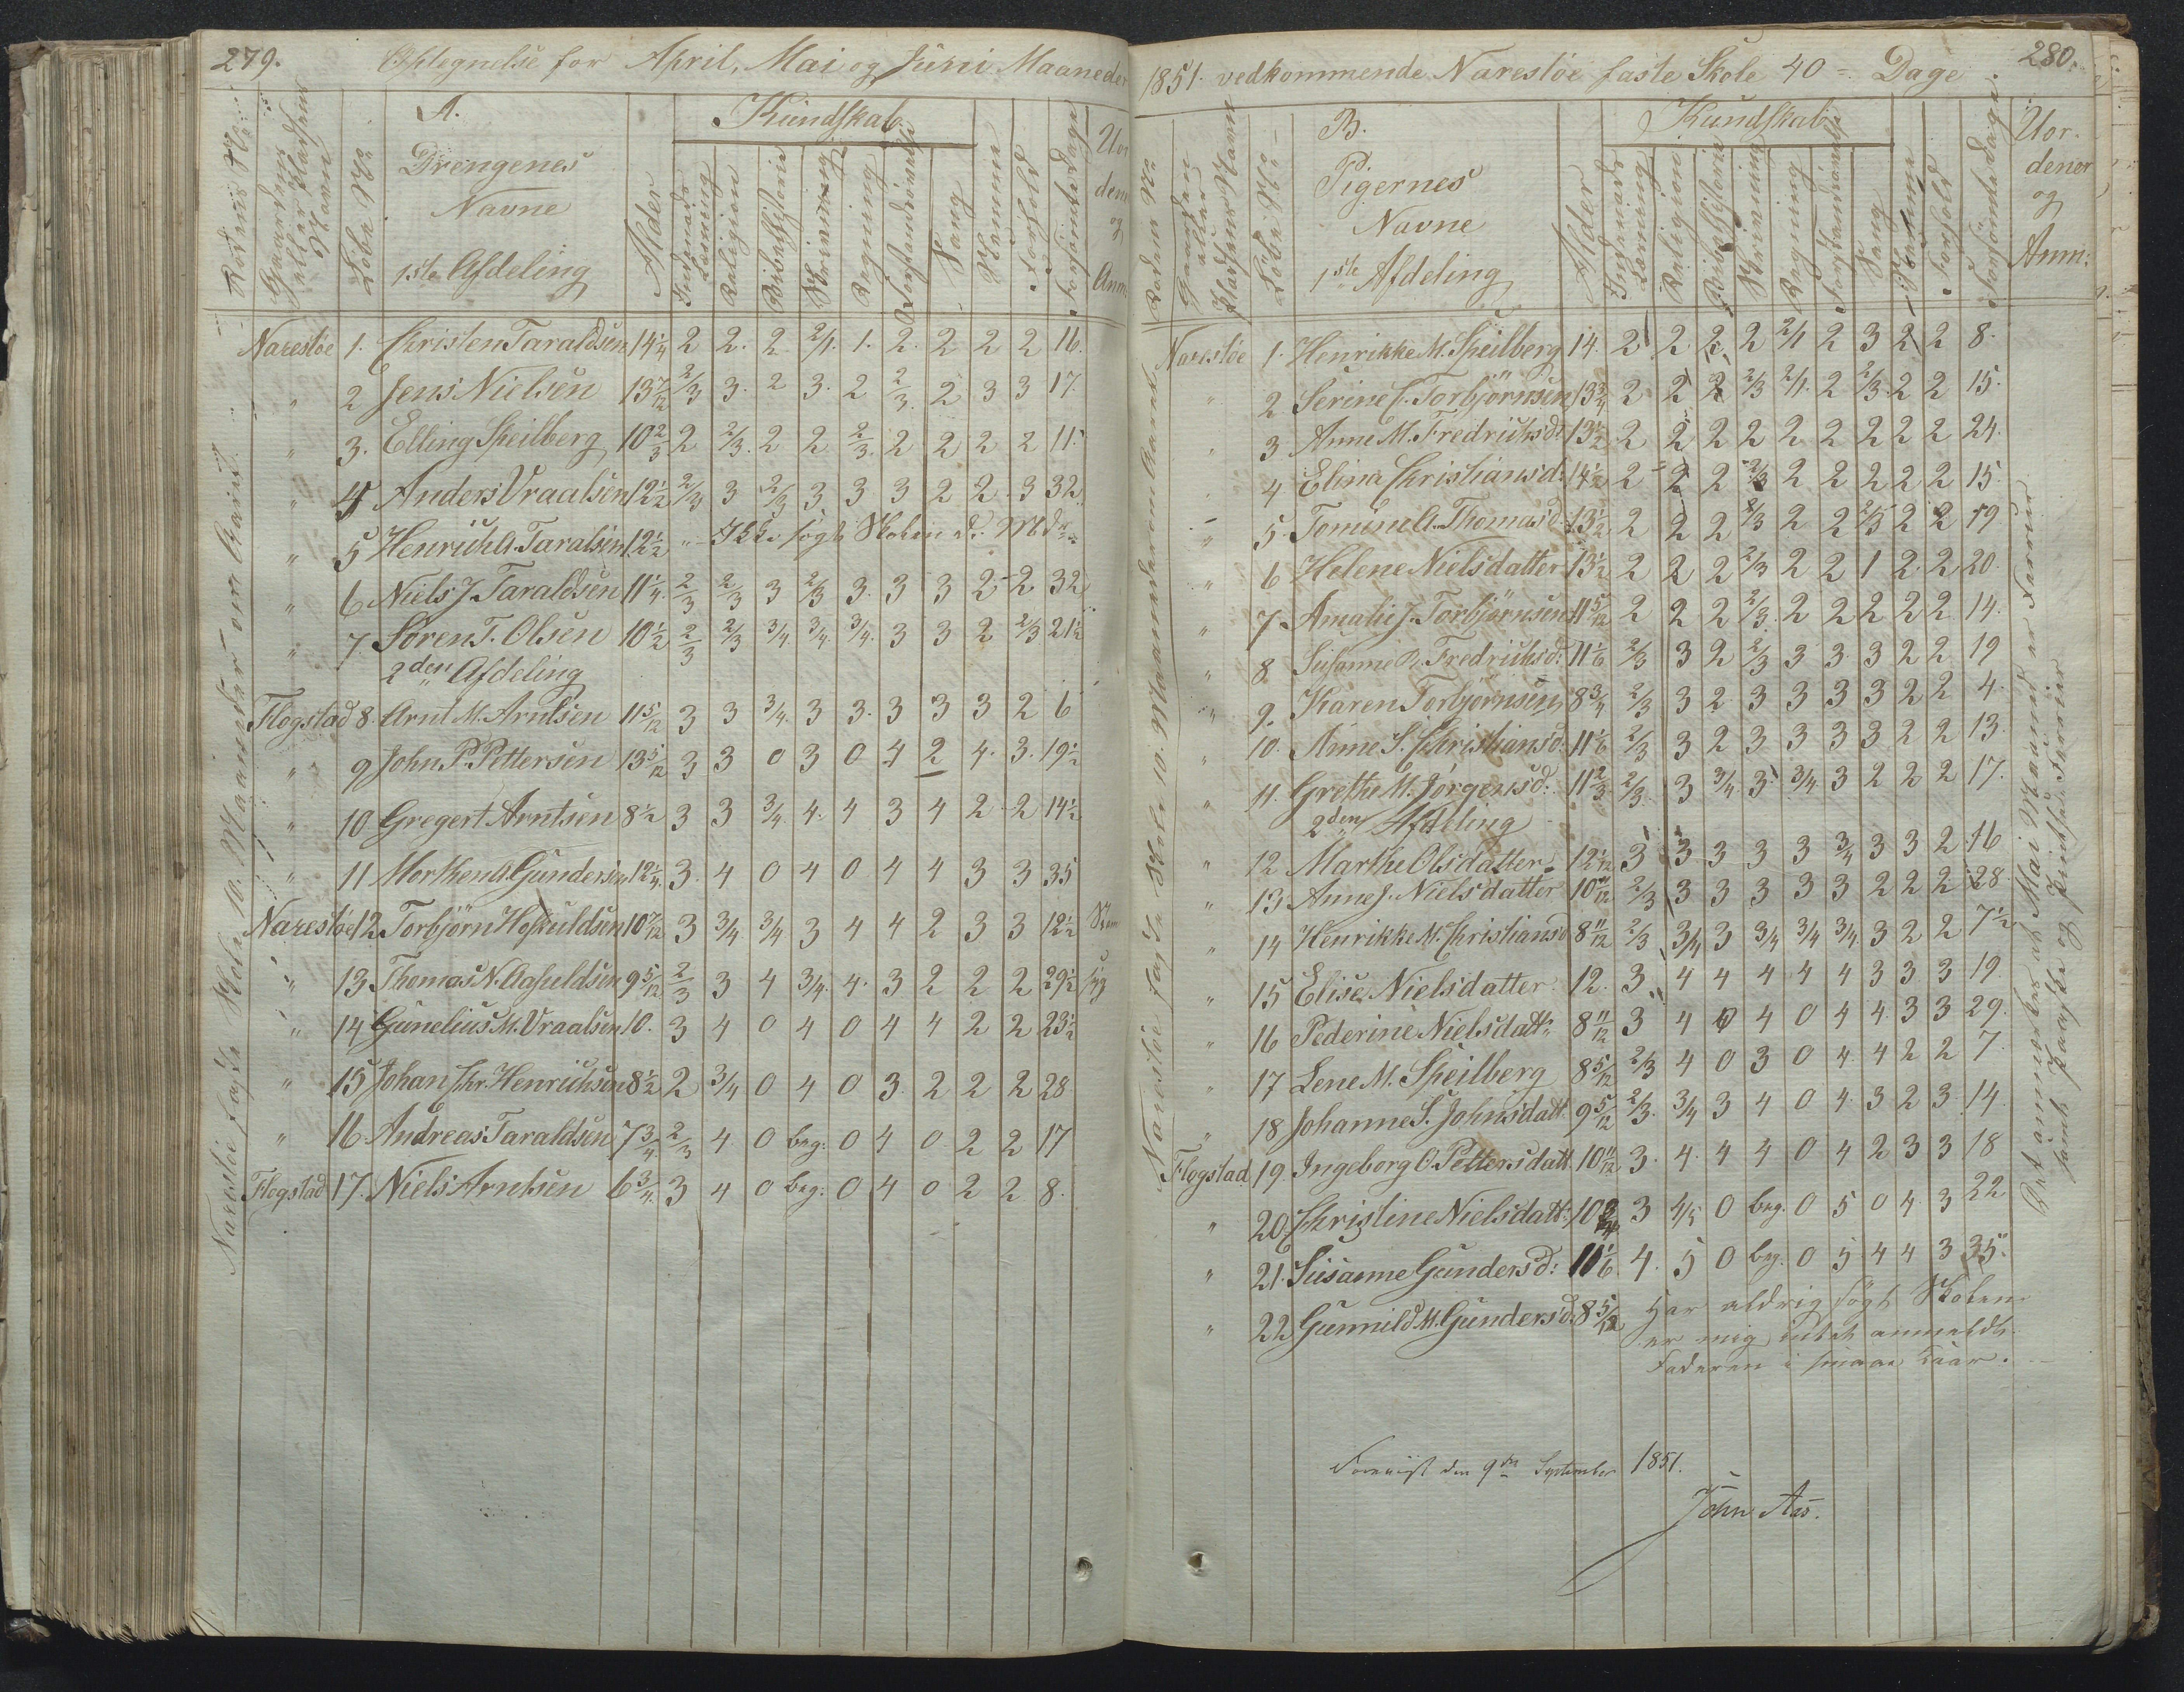 279.
Optegnelse for April, Mai og Juni Maaneder
Rodens No
Gaardens eller Pladsens Navn
Løbe No
A.
Drengenes
Navne
1ste Afdeling
Alder
Kundskab
Indenads Læsning
Religion
Bibelhistorie
Skrivning
Regning
Forstandsøvelse
Sang
Nemme
Forhold
Forsømte Dage
Uor
dener
og
Anm:
Naresløe 1. Christen Taraldsen 14 1/4 2 2. 2 2/1. 1. 2. 2 2 2 16.
" 2 Jens Nielsen 13 7/12 2/3 3. 2 3. 2 2/3. 2 3 3 17.
" 3. Elling Speilberg 10 2/3 2 2/3. 2 2 2/3. 2 2 2 2 11.
" 4 Anders Vraalsen 12 1/2 2/3 3 2/3 3 3 3 2 2. 3 32
" 5 Henrich A. Taralsen 12 1/2 " Ikke søgt Skolen
" 6 Niels J. Taraldsen 11 1/4. 2/3 2/3 3 2/3 3. 3 3 2 2 32
" 7. Søren T. Olsen 10 1/2 2/3 2/3 3/4. 3/4. 3/4. 3 3 2 2/3 21 1/2
2den Afdeling
Flogstad 8. Arnt M. Arntsen 11 5/12 3 3 3/4. 3 3. 3 3 3 2 6
" 9 John P. Pettersen 13 5/12 3 3 0 3 0 4 2 4. 3. 19 1/2
" 10 Gregert Arntsen 8 1/2 3 3 3/4. 4. 4 3 4 2 2 14 1/2
" 11 Morthen A. Gundersen 12 1/4. 3. 4 0 4 0 4 4 3 3 35
Naresløe 12 Torbjørn Hoskuldsen 10 7/12 3 3/4 3/4 3 4 4 2 3 3 12 1/2
" 13 Thomas N. Aasuldsen 9 5/12 2/3 3 4 3/4. 4. 3 2 2 2 29 1/2 syg
" 14 Gunelius M. Vraalsen 10. 3 4 0 4 0 4 4 2 2 23 1/2
" 15 Johan Chr. Henrichsen 8 1/2 2 3/4 0 4 0 3. 2 2 2 28
" 16 Andreas Taraldsen 7 3/4 2/3 4. 0 beg. 0 4 0 2 2 17
Flogstad 17. Niels Arntsen 6 3/4. 3 4 0 beg: 0 4 0 2 2 8.
Naresløe faste Skole 10. Maaneder om Aaret
280.
1851. vedkommende Naresløe faste Skole 40 = Dage
Rodens No
Gaardens eller Pladsens Navn
Løbe No
B.
Pigernes
Navne
1ste Afdeling
Alder
Kundskab
Indenads Læsning
Religion
Bibelhistorie
Skrivning
Regning
Forstandsøvelse
Sang
Nemme
Forhold
Forsømte Dage
Uor-
dener
og
Anm:
Naresløe 1. Henrikke M. Speilberg 14. 2 2. 2. 2 2/1 2 3 2 2 8.
" 2 Serine C. Torbjørnsen 13 3/4 2 2 2 2/3 2/1. 2 2/3 2 2 15.
" 3 Anne M. Fredrichsd: 13 1/2 2 2 2 2 2 2 2 2 2 24.
" 4 Elina Christiansd: 14 1/2 2 2 2 2/3 2 2 2 2 2 15.
" 5. Tomine A. Thomasd. 13 1/2. 2 2 2 2/3 2 2 2/3 2 2 19
" 6 Helene Nielsdatter 13 1/2 2 2 2 2/3 2 2 1 2 2 20.
" 7. Amalie J. Torbjørnsen 11 5/12 2 2 2 2/3. 2 2 2 2 2 14.
" 8 Susanne B. Fredrichsd: 11 1/6 2/3 3 2 2/3 3 3 3 2 2 19
" 9. Karen Torbjørnsen 8 3/4 2/3 3 2 3 3 3 3 2 2 4.
" 10. Anne S. Christiansd: 11 1/6 2/3 3 2 3 3 3 3 2 2 13.
" 11. Grethe M. Jørgensd: 11 2/3 2/3. 3 3/4. 3 3/4 3 2 2 2 17.
2den Afdeling
" 12 Marthe Olsdatter 12 1/12 3 3. 3 3 3 3/4 3 3 2 16
" 13 Anne J. Nielsdatter 10 11/12 2/3 3 3 3 3 3 2 2 2 28.
" 14 Henrikke M. Christiansd 8 11/12 2/3 3/4 3 3/4 3/4 3/4 3 2 2 7 1/2
" 15 Elise Nielsdatter. 12. 3. 4 4 4 4 4 3 3 3 19.
" 16 Pederine Nielsdatt: 8 11/12 3 4 0 4 0 4 4. 3 3 29.
" 17 Lene M. Speilberg 8 5/12 2/3 4 0 3 0 4 4 2 2 7.
" 18 Johanne S. Johnsdatt. 9 5/12 2/3. 3/4 3 4 0 4. 3 2 3 14.
Flogstad 19. Ingeborg O. Pettersdatt. 10 11/12 3. 4. 4 4 0 4 2 3 3 18
" 20. Christine Nielsdatt: 10 3/4 3 4/5 0 beg. 0 5 0 4. 3 22
" 21. Susanne Gundersd: 11 1/6. 4. 5 0 beg. 0 5 4 4 3 35.
" 22 Gunnild M. Gundersd. 8 5/12 Har aldrig søgt Skolen
er mig intet anmeldt.
Faderen i smaae Kaar.
Naresløe faste Skole 10. Maaneder om Aaret
Det anmærkes at Mai Maaned er Ferier
samt Paaske og Pindse Ferier
Foreviist den 9de September 1851.
John Aas.